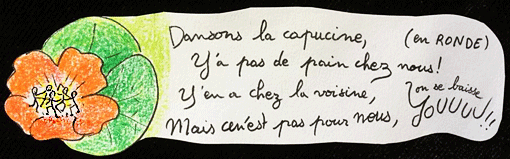 Dansons la capucine, (en RONDE)
Y'à pas de pain chez nous!
Y'en a chez la voisine,
Mais ce n'est pas pour nous,
on se baisse
YOUUUU!!!